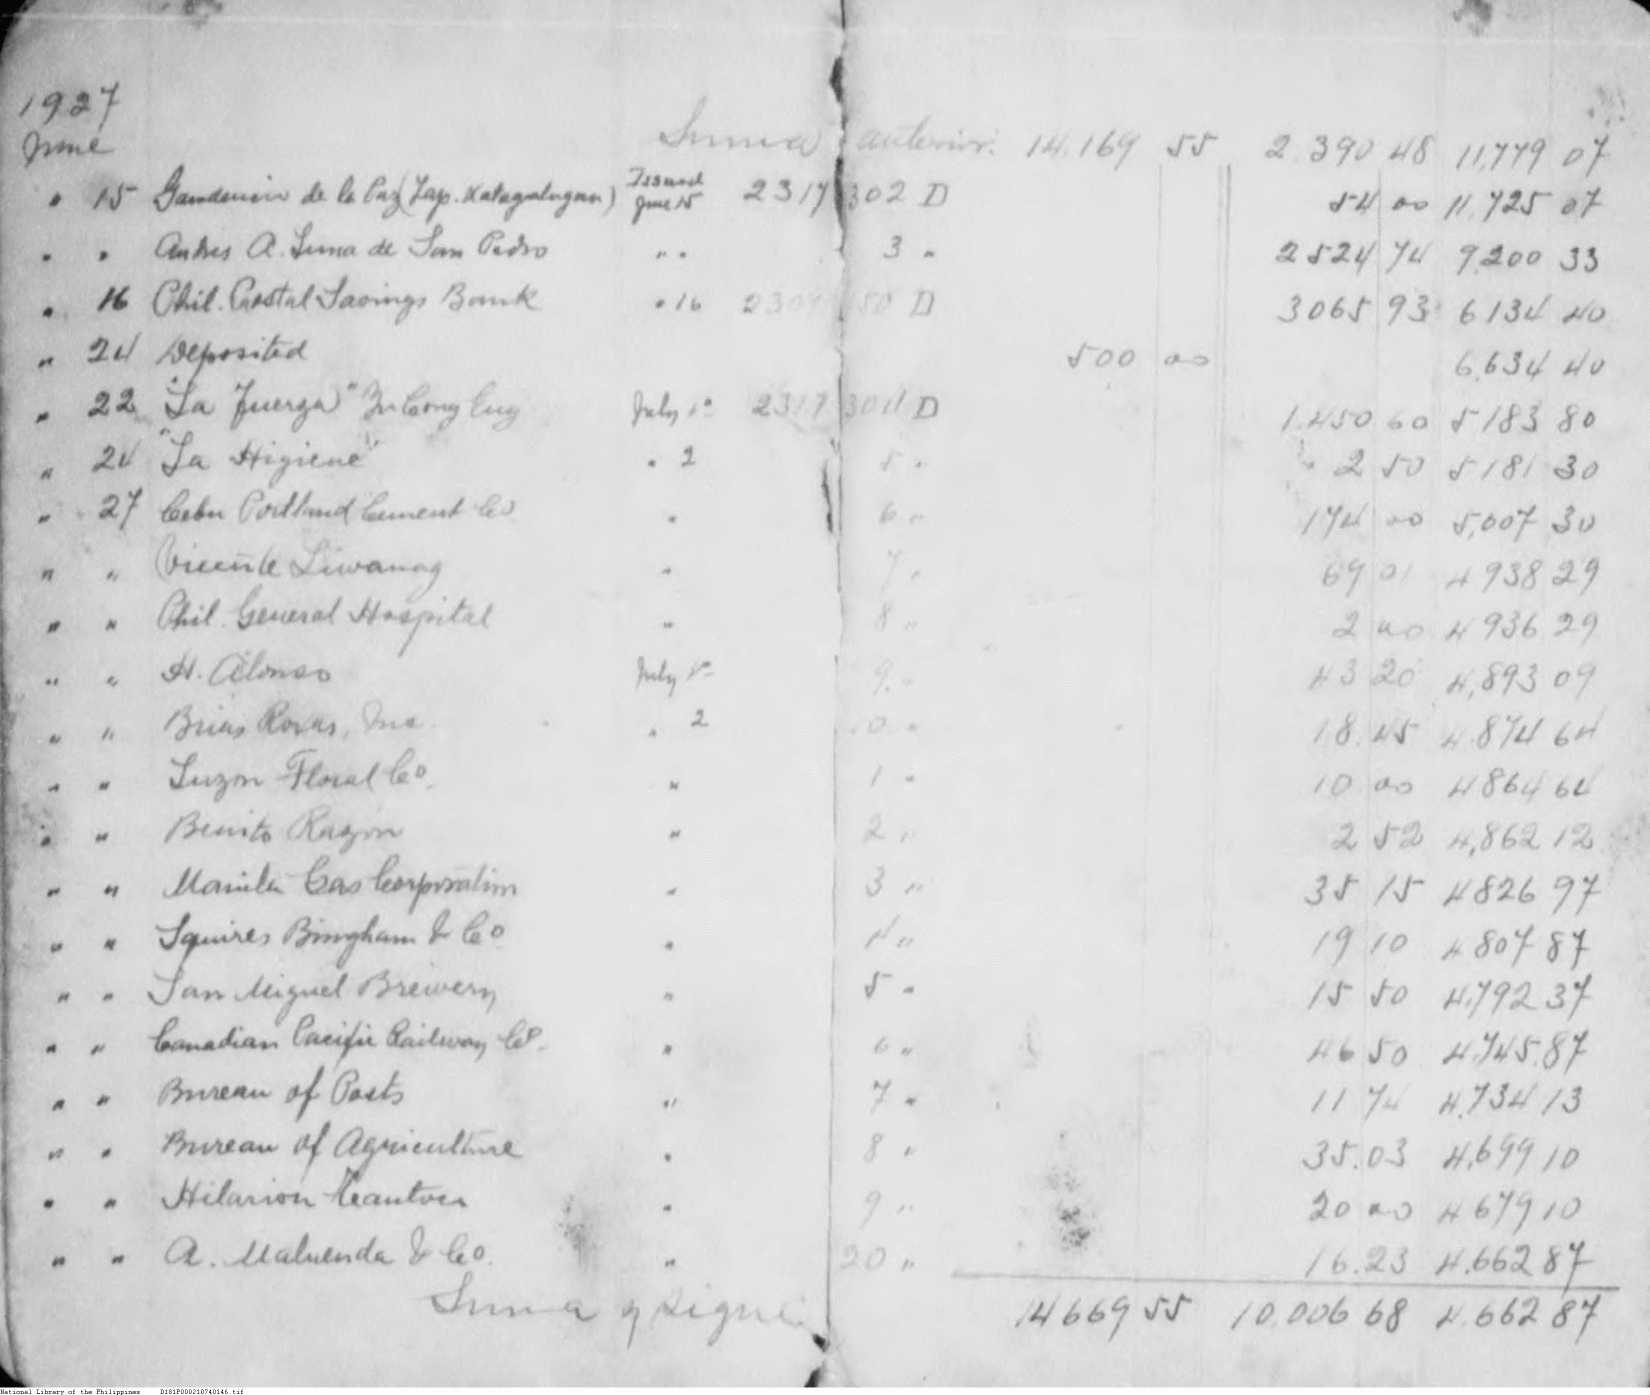 1927
June Suma anterior. 14.169 55 2.390 48 11,779 07
" 15 Gaudencio de la Paz (Zap. Katagalugan) Issued June 15 2317 302 D 54 00 11,725 07
" " Andres A. Luna de San Pedro " " 3 " 2524 74 9,200 33
" 16 Phil. Postal Savings Bank " 16 230 50 D 3065 93 6134 40
" 24 Deposited 500 00 6,634 40
" 22 "La Fuerza" July 1º 2317 304 D 1.450 60 5183 80
" 24 "La Higiene" " 2 5 " 2 50 5181 30
" 27 Cebu Portland Cement Co " 6 " 174 00 5,007 30
" " Vicente Liwanag " 7 " 69 01 4938 29
" " Phil. General Hospital " 8 " 2 00 4936 29
" " H. Alonso July 1º 9 " 43 20 4,893 09
" " Brias Roxas, Inc. " 2 10 " 18.45 4.874 64
" " Luzon Floral Co. " 1 " 10 00 4864 64
" " Benito Razon " 2 " 2 52 4,862 12
" " Manila Gas Corporation " 3 " 35 15 4826 97
" " Squires Bingham & Co " 4 " 19 10 4807 87
" " San Miguel Brewery " 5 " 15 50 4,792 37
" " Canadian Pacific Railway Co. " 6 " 46 50 4,745.87
" " Bureau of Posts " 7 " 11 74 4,734 13
" " Bureau of Agriculture " 8 " 35.03 4,699 10
" " Hilarion " 9 " 20 00 4679 10
" " A. Maluenda & Co. " 20 " 16.23 4.662 87
Suma y sigue 14669 55 10.006 68 4.662 87
National Library of the Philippines D181P000210740146.tif